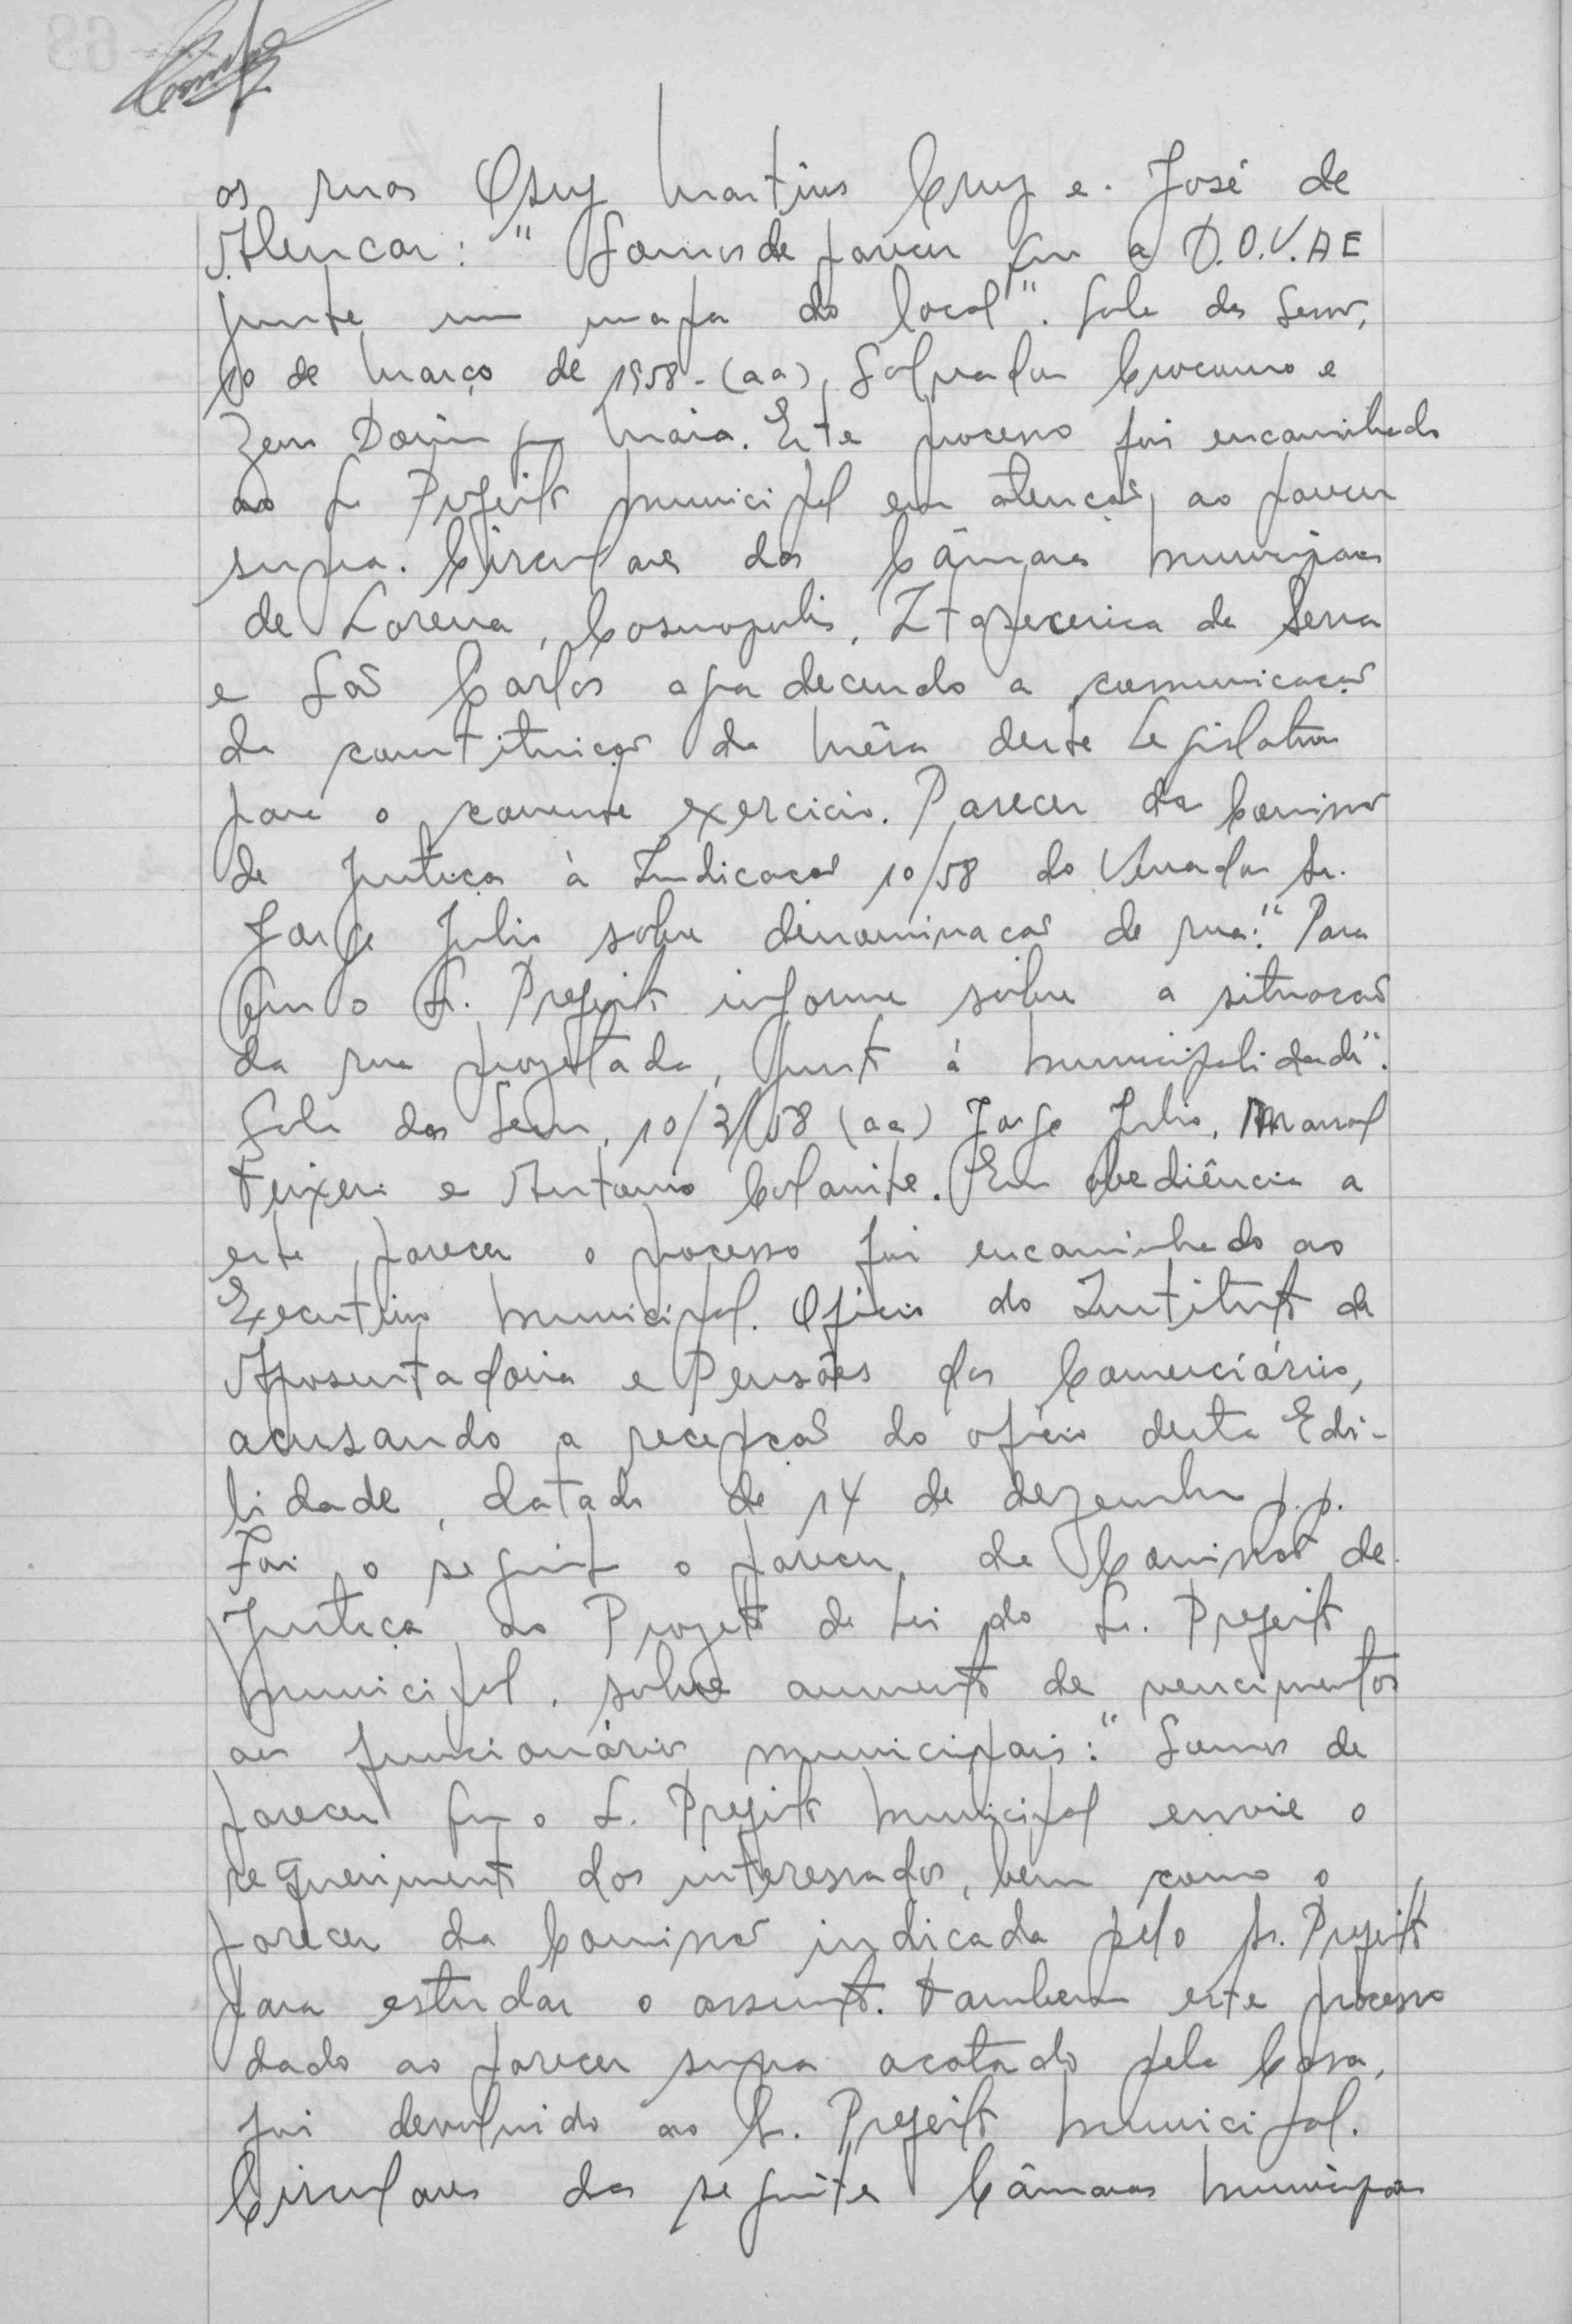 as ruas Osuy Martins Cruz e José de
Alencar: " Somos de parecer que a D.O.V.AE
junte um mapa do local". Sala das Sessões,
10 de março de 1958 - (aa) Salvador
e Maia. Este processo foi encaminhado
ao Sr. Prefeito Municipal em atenção ao parecer
supra. Circulares das Câmaras municipais
de Lorena, Cosmopolis, Itapecerica da Serra
e São Carlos agradecendo a comunicação
da constituição da Mêsa deste Legislativo
para o corrente exercicio. Parecer da Comissão
de Justiça à Indicação 10/58 do Vereador Sr.
Jorge Julio sobre denominação de rua: " Para
que o Sr. Prefeito informe sobre a situação
da rua projetada, junto á municipalidade".
Sala das Sessões, 10/3/58 (aa) Jorge Julio, Amaral
Teixeira e Antonio Colanite. Em obediência a
este parecer o processo foi encaminhado ao
Executivo Municipal. Oficio do Instituto de
Aposentadoria e Pensões dos Comerciários,
acusando a recepção do oficio desta Edi-
lidade, datado de 14 de dezembro p.p.
Foi o seguinte o parecer da Comissão de
Justiça ao Projeto de Lei do Sr. Prefeito
Municipal, sobre aumento de vencimentos
aos funcionários municipais: " Somos de
parecer que o Sr. Prefeito Municipal envie o
requerimento dos interessados, bem como o
parecer da Comissão indicada pelo Sr. Prefeito
para estudar o assunto. Tambem este processo
dado ao parecer supra acatado pela Casa,
foi devolvido ao Sr. Prefeito Municipal.
Circulares das seguintes Câmaras Municipais